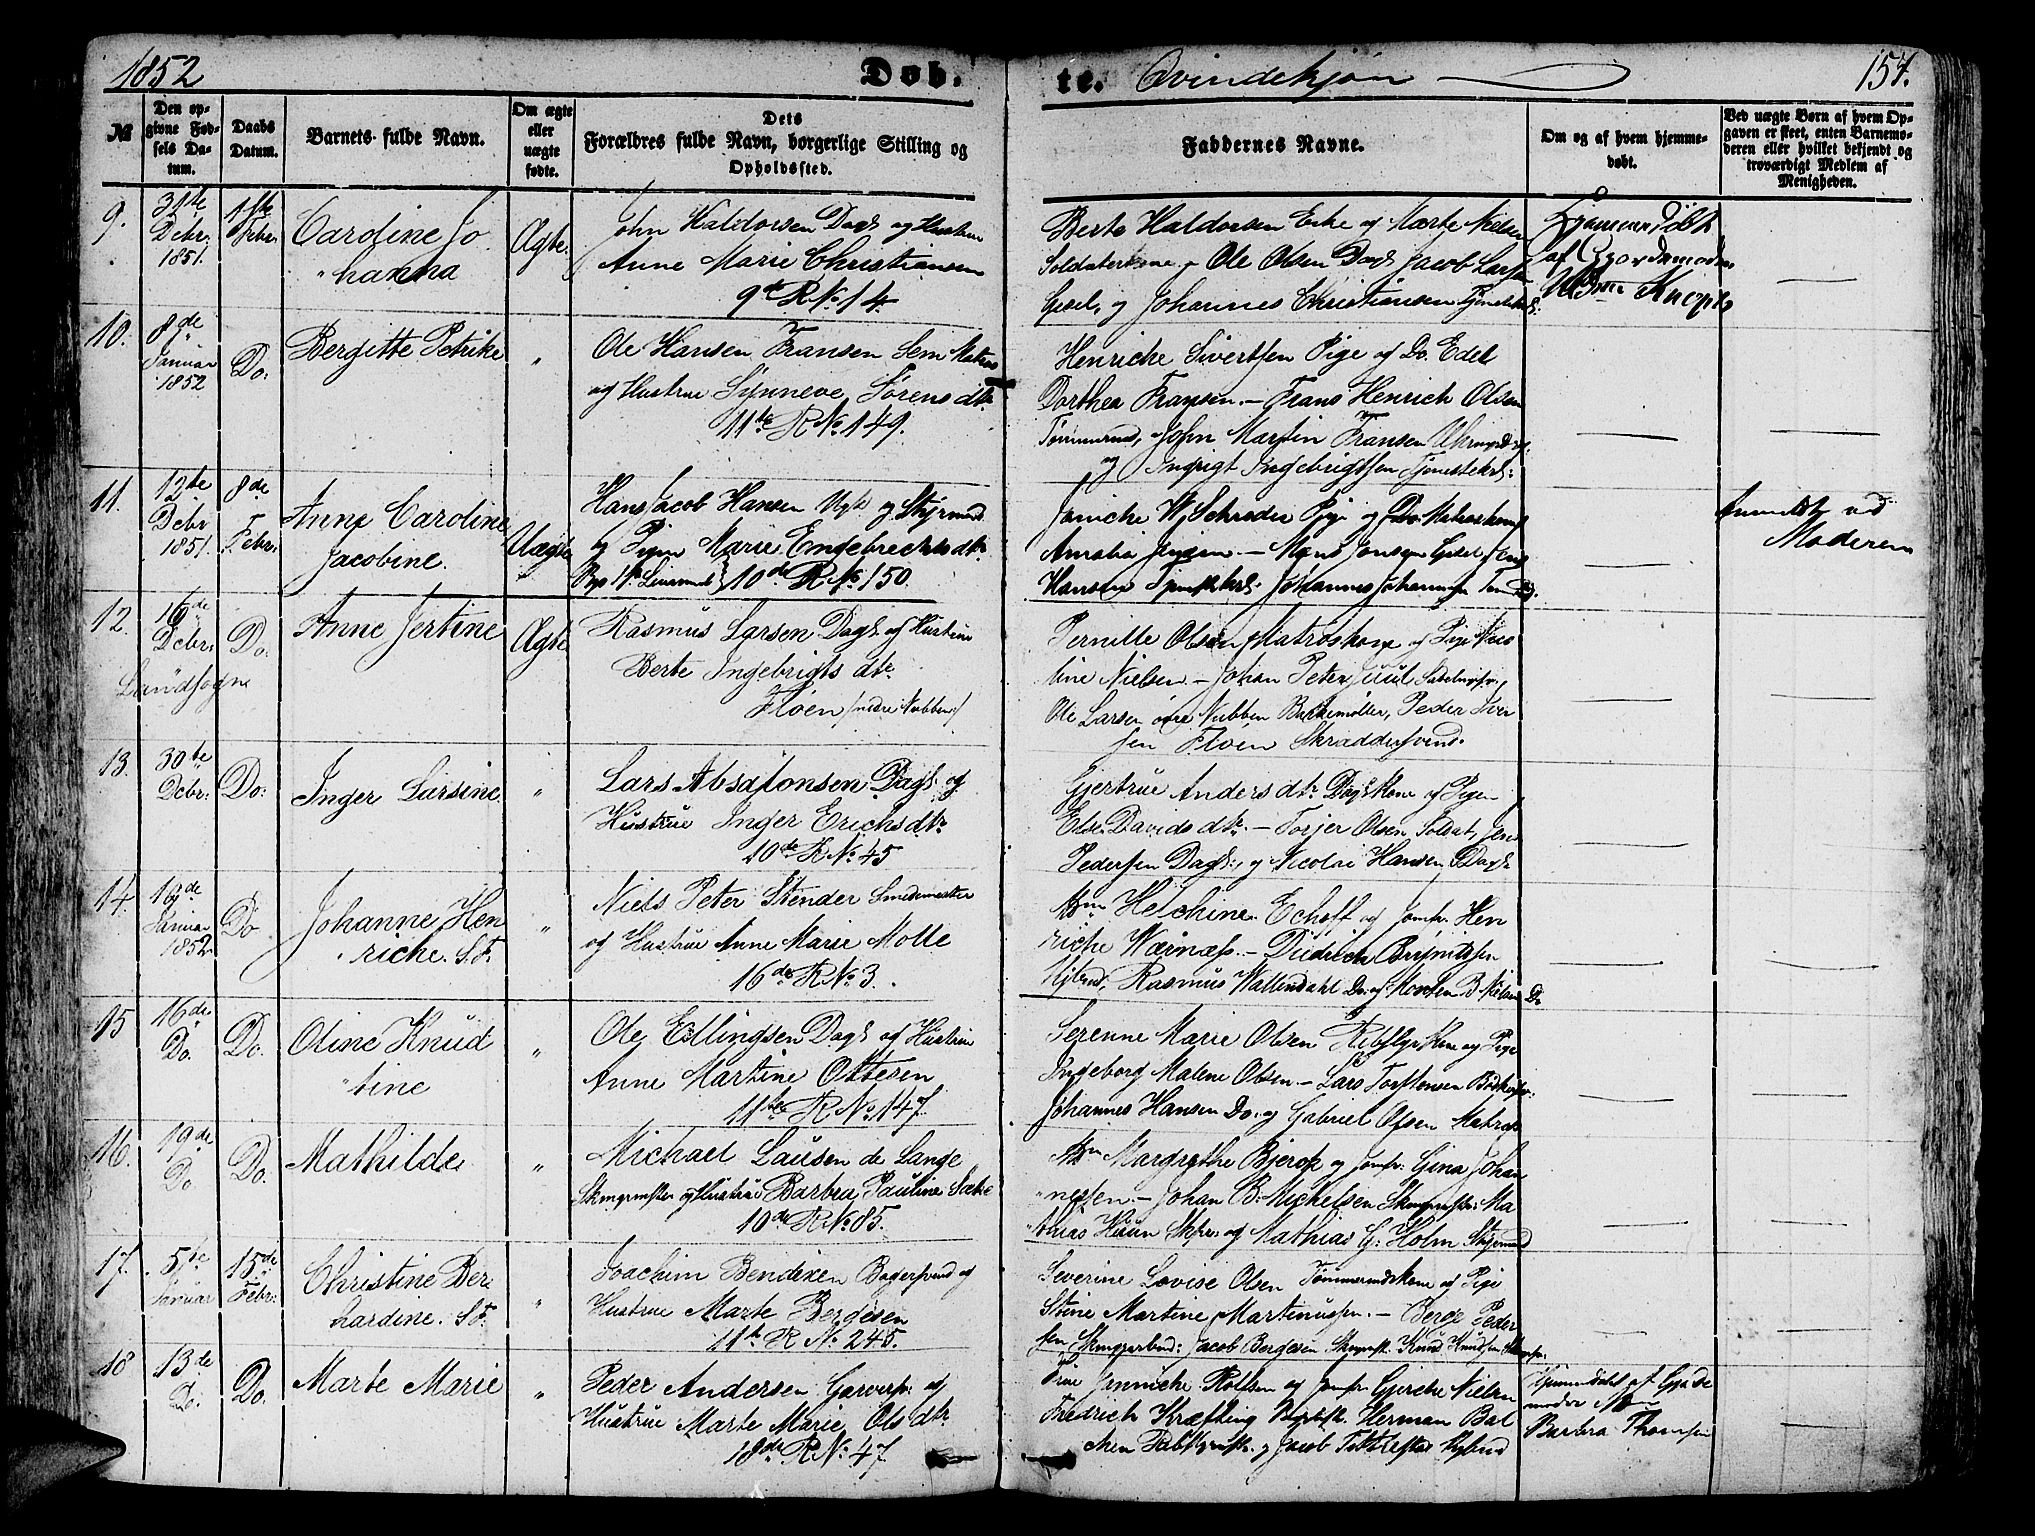 1852
Døb.
te.
Qvindekjøn
157.
№
Den op-
givne Fød-
sels Da-
tum.
Daabs
Datum.
Barnets fulde Navn.
Om ægte
eller
uægte
fødte.
Dets
Forældres fulde Navn, borgerlige Stilling og
Opholdssted.
Faddernes Navne.
Om og af hvem hjemme-
døbt.
Ved uægte Børn af hvem Op-
gaven er skeet, enten Barnemo-
deren eller hvilket bekjendt og
troværdigt Medlem af
Menigheden.
9.
31te
Decbr.
1851.
1ste
Febr.
Caroline Jo
hanna
Ægte
John Haldorsen Dagk og Hustrue
Anne Marie Christiansen
9de R No 14.
Berte Haldorsen Enke og Marte Nielsen
Soldaterkone, Ole Olsen Dagk Jacob Larsen
Gesel, og Johannes Christiansen Tjenestek.
Hjemmedøbt
af Gjordemoder
Mdme Knoph
10.
8de
Januar
1852
Do:
Bergitte Petrike
"
Ole Hansen Fransen Sem Matros
og Hustrue Synneve Sørensdtr
11te R No 149.
Henriche Sivertsen Pige og Do. Edel
Dorthea Fransen. - Frans Henrich Olsen
Tømmermd, John Martin Fransen
og Ingrigt Ingebrigtsen Tjenestek:
11.
12te
Decbr
1851.
8de
Febr:
Anne Caroline
Jacobine.
Uægte
Hans Jacob Hansen Ugk og Styrmd
og Pigen Marie Engebrechtsdtr
10de R No 150.
Janiche W. Schrøder Pige og Do. Matroskone
Amalia Jensen. - Mons Jonsen Gesel, Jens
Hansen Tjenestek. Johannes Johannesen
Anmeldt ved
Moderen
12.
16de
Decbr:
Landsogne
Do:
Anne Jertine
Ægte
Rasmus Larsen Dagk og Hustrue
Berte Ingebrigtsdtr
Fløen (nedre Nubben)
Pernille Olsen, Matroskone og Pige
tine Nielsen. - Johan Peter Juul
Ole Larsen øvre Nubben, Peder Iver
sen Fløen Skræddersvend.
13.
30te
Decbr:
Do:
Inger Larsine
"
Lars Absalonsen Dagk og
Hustrue Inger Erichsdtr
10de R No 45
Gjertrue Andersdtr Dagk Kone og Pige
Else Davidsdtr. - Torjer Olsen Soldat, Jens
Pedersen Dagk:, og Nicolai Hansen Dagk
14.
16de
Januar
1852.
Do
Johanne Hen
riche. S.F.
"
Niels Peter Stender Smedemester
og Hustrue Anne Marie Molle
16de R No 3.
Mdm Helchine Echoff og Jomfr. Hen
riche Wærnæss. - Diedrich
Rasmus Wallendahl Do: og Morten B Nielsen Do
15
16de
Do.
Do.
Oline Knud
tine
"
Ole Edlingsen Dagk og Hustrue
Anne Martine Ottesen
11te R No 147
Serenne Marie Olsen Kone og Pige
Ingeborg Malene Olsen. - Lars Torstensen
Johannes Hansen Do: og Gabriel Olsen Matros
16.
19de
Do
Do.
Mathilde
"
Michael Lausen de Lange
Skomgrmester og Hustrue Barbra Pauline
10de R No 85.
Mdm Margrethe Bjerop og Jomfr: Gina Johan
nessen. - Johan B: Michelsen Skomgrmester Ma
thias Haun Skpr. og Mathias G: Holm Styrmand
17.
5te
Januar
15de
Febr:
Christine Ber
hardine. S.F.
"
Joachim Bendixen Bagersvend og
Hustrue Marte Bergesen
11te R No 245.
Severine Lovise Olsen Tømmermdskone og Pige
Stine Martine Martinussen. - Berge Peder
sen Jacob Bergesen Knud Knudsen
18
13de
Do:
Do.
Marte Marie
"
Peder Andersen Garversv og
Hustrue Marte Marie Olsdtr
18de R No: 47
Frue Janniche Rolfsen og Jomfr Gjerche Nielsen
Fredrich Kræfting Herman Bal
chen og Jacob
Hjemmedøbt af Gjorde
moder
Barbra Thomsen